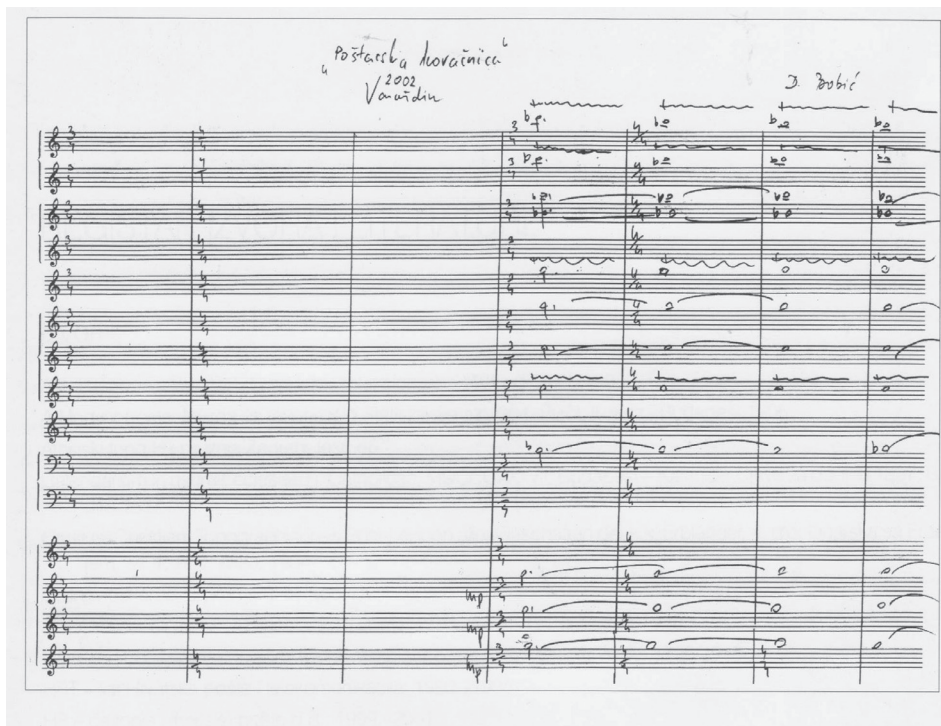 "Poštarska kovačnica"
2002
Varaždin
D. Bobić
mp
mp
mp